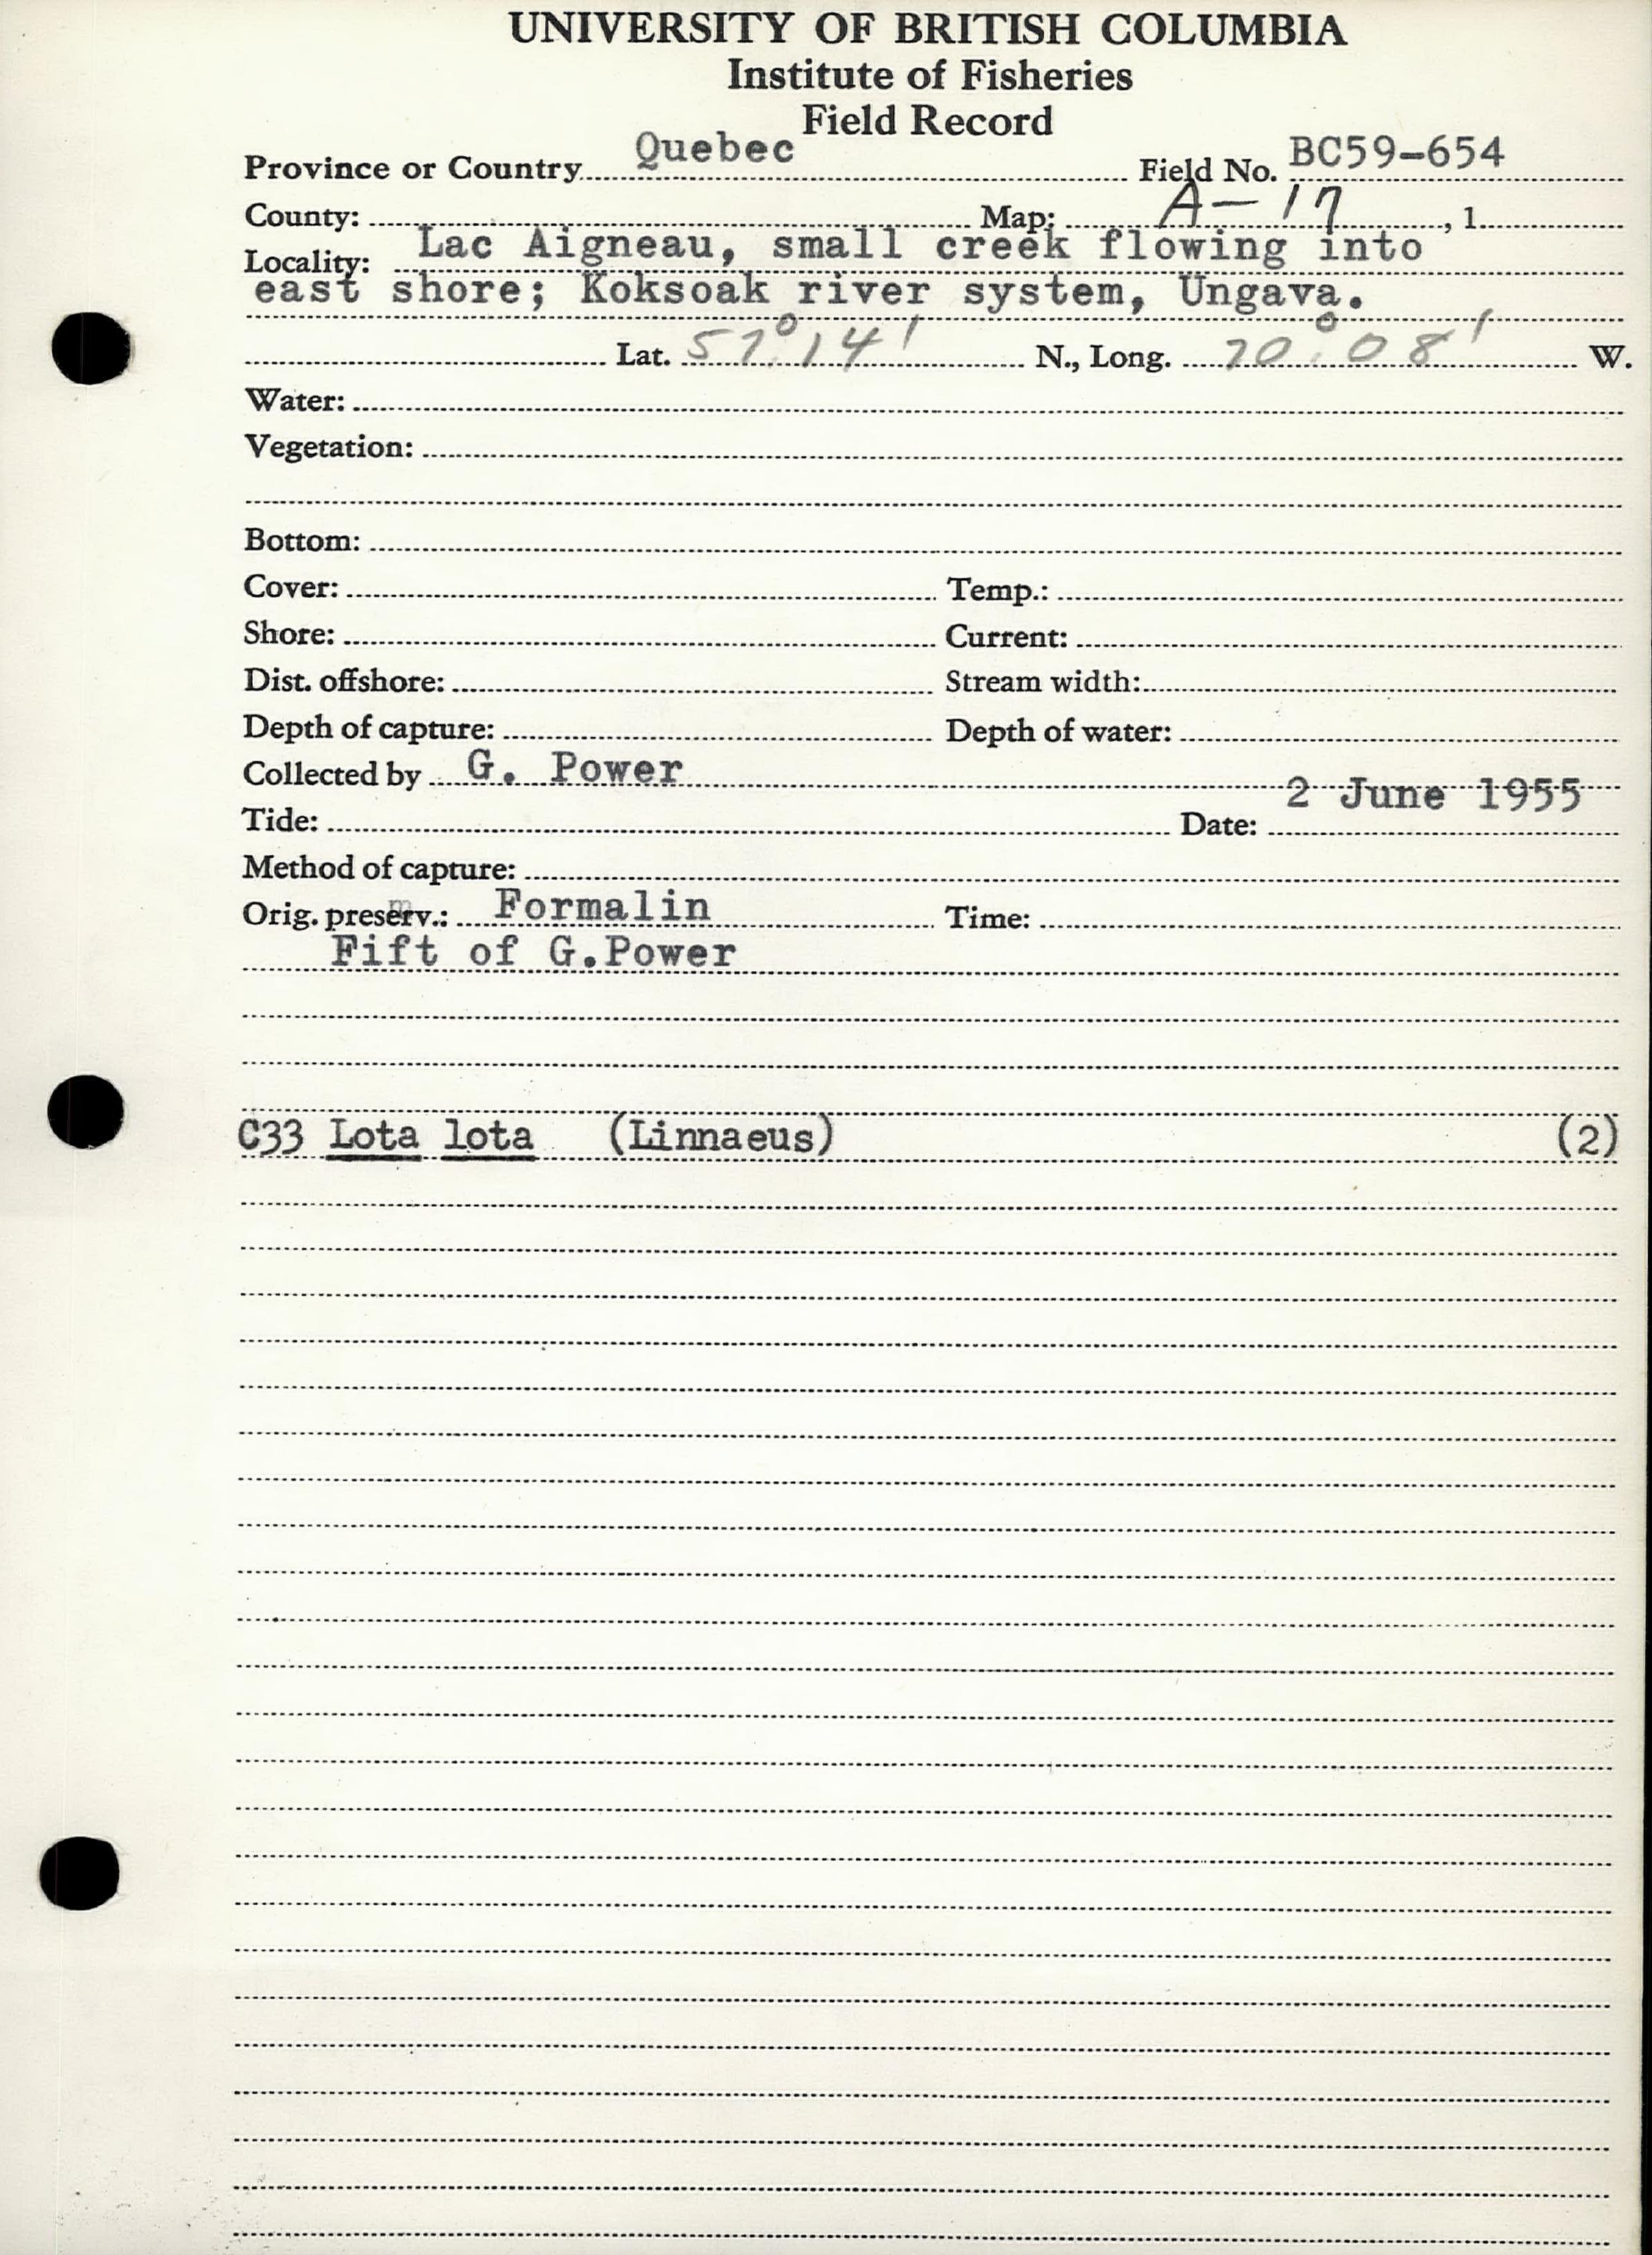 UNIVERSITY OF BRITISH COLUMBIA
Institute of Fisheries
Field Record
Province or Country Quebec Field No. BC59-654
County: Map: A-17, 1
Locality: Lac Aigneau, small creek flowing into
east shore; Koksoak river system, Ungava.
Lat. 57°14' N., Long. 70°08' W.
Water:
Vegetation:
Bottom:
Cover: Temp.:
Shore: Current:
Dist. offshore: Stream width:
Depth of capture: Depth of water:
Collected by G. Power
Tide: Date: 2 June 1955
Method of capture:
Orig. preserv.: Formalin Time:
Fift of G.Power
C33 Lota lota (Linnaeus) (2)